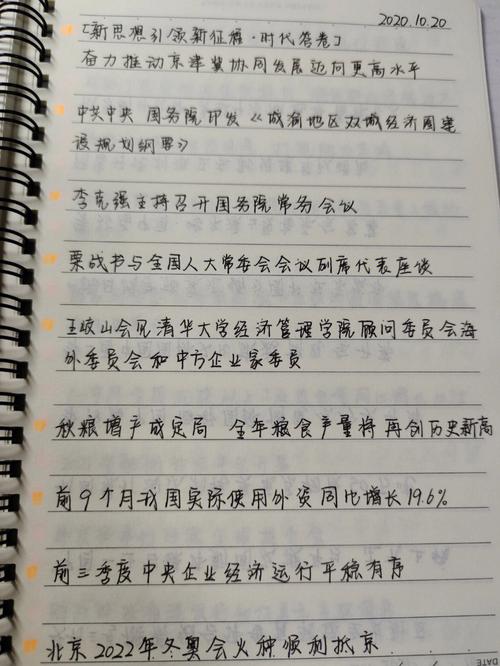 2020.10.20
[新思想引领新征程·时代答卷]
奋力推动京津冀协同发展迈向更高水平
中共中央 国务院印发《成渝地区双城经济圈建
设规划纲要》
李克强主持召开国务院常务会议
栗战书与全国人大常委会会议列席代表座谈
王岐山会见清华大学经济管理学院顾问委员会海
外委员会和中方企业家委员
秋粮增产成定局 全年粮食产量将再创历史新高
前9个月我国实际使用外资同比增长19.6%
前三季度中央企业经济运行平稳有序
北京2022年冬奥会火种顺利抵京
DATE